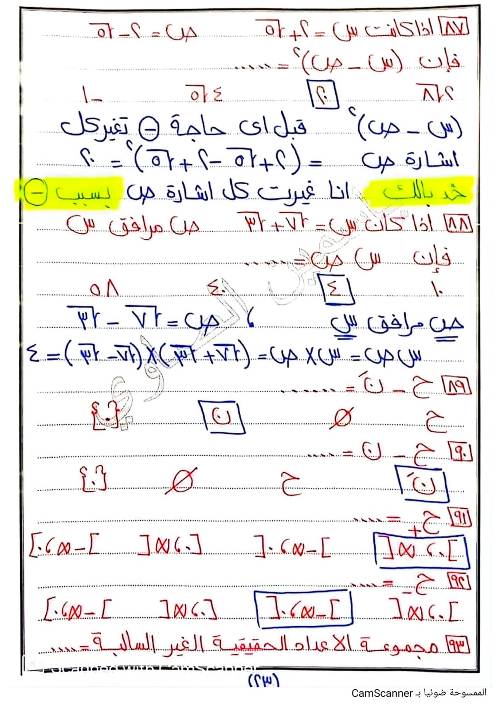 ٨٧ اذا كانت س = ٢ + √٥ ص = ٢ − √٥
فإن (س − ص)² = .....
٢√٨ ٢٠ ٤√٥ −١
(س − ص)² قبل اى حاجة ⊖ تغير كل
اشارة ص = (٢ + √٥ − ٢ + √٥)² = ٢٠
خد بالك انا غيرت كل اشارة ص بسبب ⊖
٨٨ اذا كان س = √٧ + √٣ ص مرافق س
فإن س ص = .....
١٠ ٤ ٤٠ ٥٨
ص مرافق س ، ص = √٧ − √٣
س ص = س × ص = (√٧ + √٣)(√٧ − √٣) = ٤
٨٩ ح − نَ = .....
ح ∅ ن {٠}
٩٠ ح − ن = .....
نَ ح ∅ {٠}
٩١ ح₊ = .....
]٠، ∞[ ]−∞، ٠[ [٠، ∞[ ]−∞، ٠]
٩٢ ح₋ = .....
]٠، ∞[ ]−∞، ٠[ [٠، ∞[ ]−∞، ٠]
٩٣ مجموعة الاعداد الحقيقية الغير السالبة = .....
Scanned with CamScanner
(٢٣)
الممسوحة ضوئيا بـ CamScanner